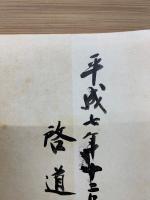 平成七年十二月
啓道